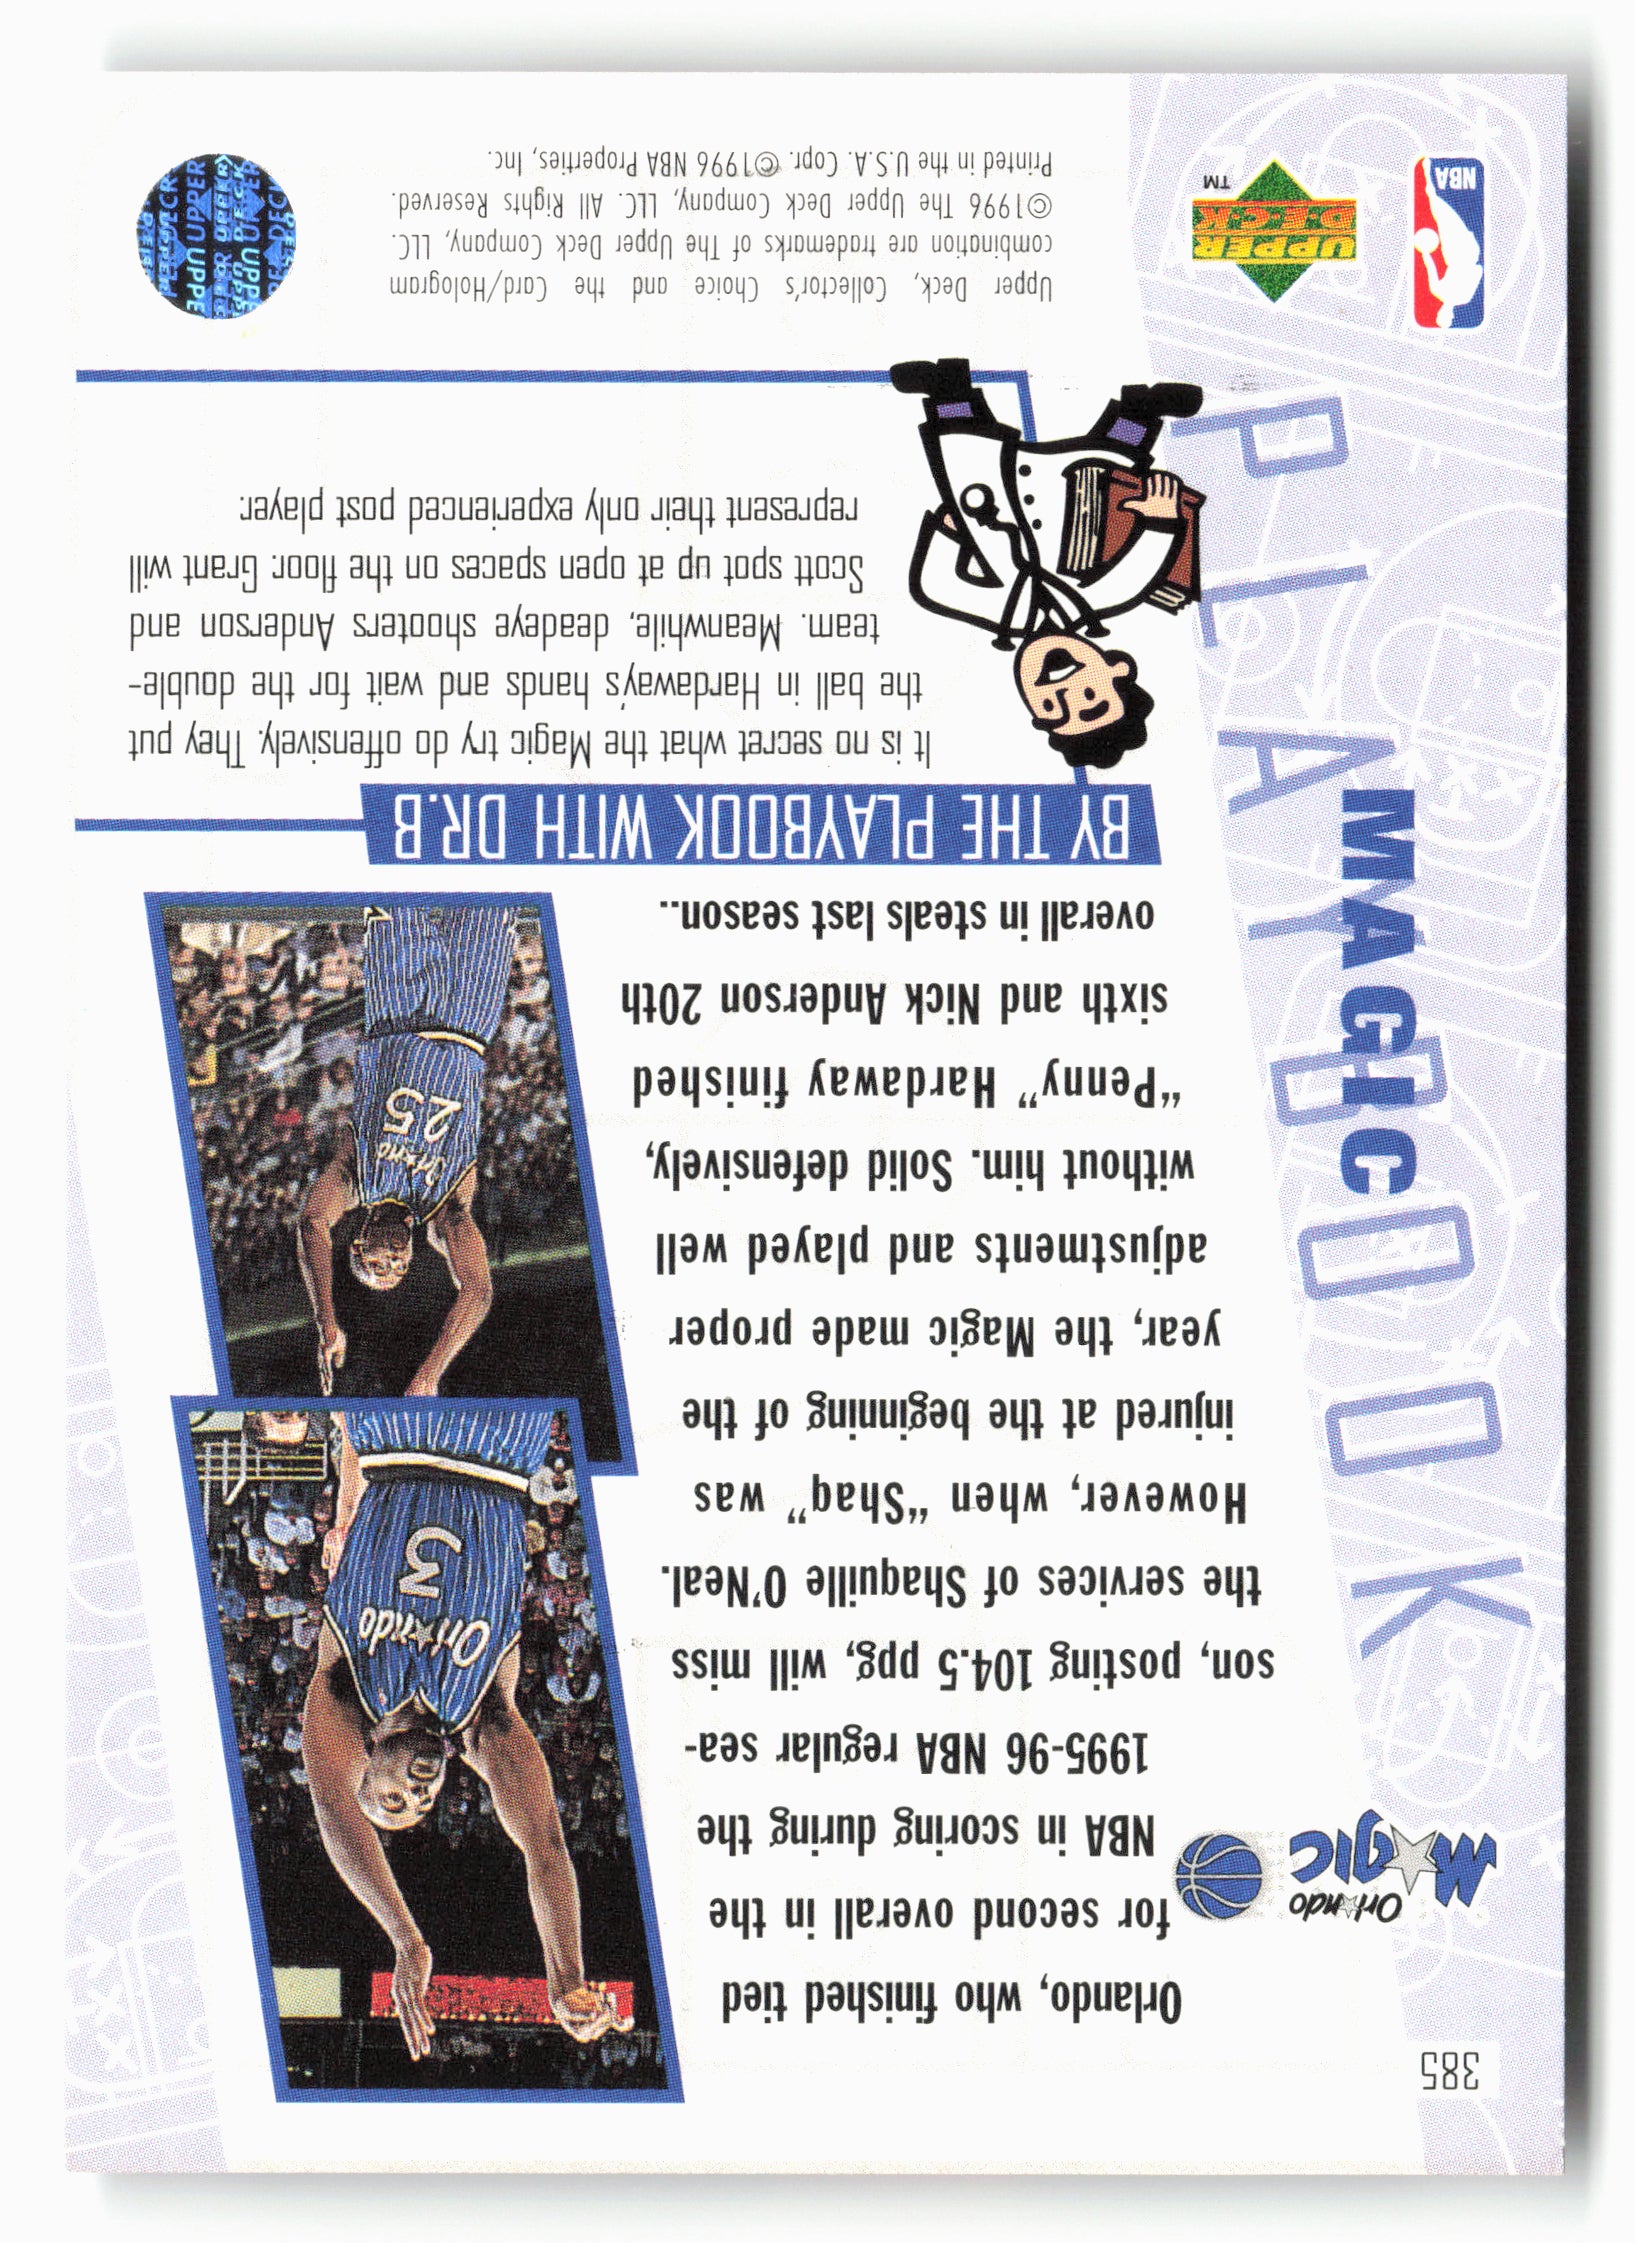 385
Orlando, who finished tied
for second overall in the
NBA in scoring during the
1995-96 NBA regular sea-
son, posting 104.5 ppg, will miss
the services of Shaquille O'Neal.
However, when "Shaq" was
injured at the beginning of the
year, the Magic made proper
adjustments and played well
without him. Solid defensively,
"Penny" Hardaway finished
sixth and Nick Anderson 20th
overall in steals last season..
Orlando
Magic
PLAYBOOK
MAGIC
Orlando
3
Orlando
25
BY THE PLAYBOOK WITH DR.B
It is no secret what the Magic try do offensively. They put
the ball in Hardaway's hands and wait for the double-
team. Meanwhile, deadeye shooters Anderson and
Scott spot up at open spaces on the floor. Grant will
represent their only experienced post player.
NBA
UPPER
DECK
TM
Upper Deck, Collector's Choice and the Card/Hologram
combination are trademarks of The Upper Deck Company, LLC.
©1996 The Upper Deck Company, LLC. All Rights Reserved.
Printed in the U.S.A. Copr. ©1996 NBA Properties, Inc.
UPPER
DECK